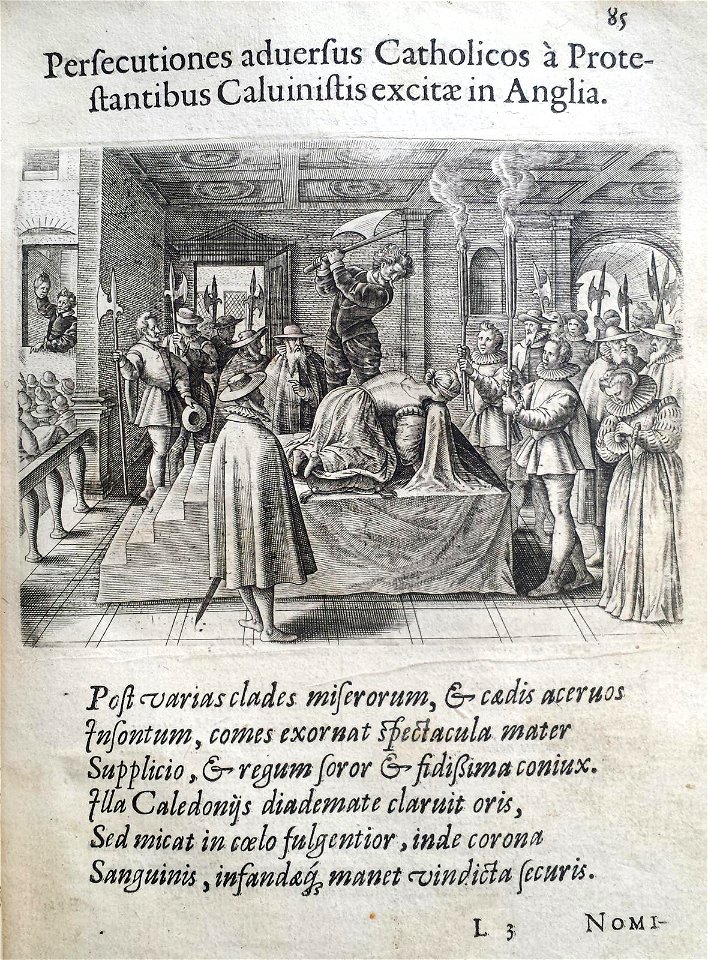 85
Perſecutiones aduerſus Catholicos à Prote-
ſtantibus Caluiniſtis excitæ in Anglia.
Poſt varias clades miſerorum, & cædis aceruos
Inſontum, comes exornat ſpectacula mater
Supplicio, & regum ſoror & fidißima coniux.
Illa Caledonijs diademate claruit oris,
Sed micat in cœlo fulgentior, inde corona
Sanguinis, infandæq́₃ manet vindicta ſecuris.
L 3 NOMI-